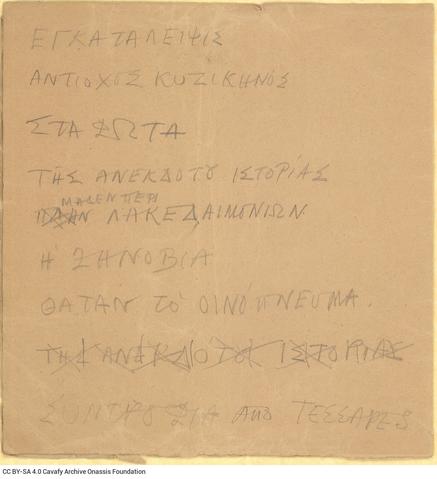 ΕΓΚΑΤΑΛΕΙΨΙΣ
ΑΝΤΙΟΧΟΣ ΚΥΖΙΚΗΝΟΣ
ΣΤΑ ΦΩΤΑ
ΤΗΣ ΑΝΕΚΔΟΤΟΥ ΙΣΤΟΡΊΑΣ
ΠΕΡΙ
ΛΑΚΕΔΑΙΜΟΝΙΩΝ
Η ΖΗΝΟΒΙΑ
ΘΑΤΑΝ ΤΟ ΟΙΝΟΠΝΕΥΜΑ.
ΤΗΣ ΑΝΕΚΔΟΤΟΥ ΙΣΤΟΡΙΑΣ
ΣΥΝΤΡΟΦΙΑ ΑΠΟ ΤΕΣΣΑΡΕΣ
CC BY-SA 4.0 Cavafy Archive Onassis Foundation